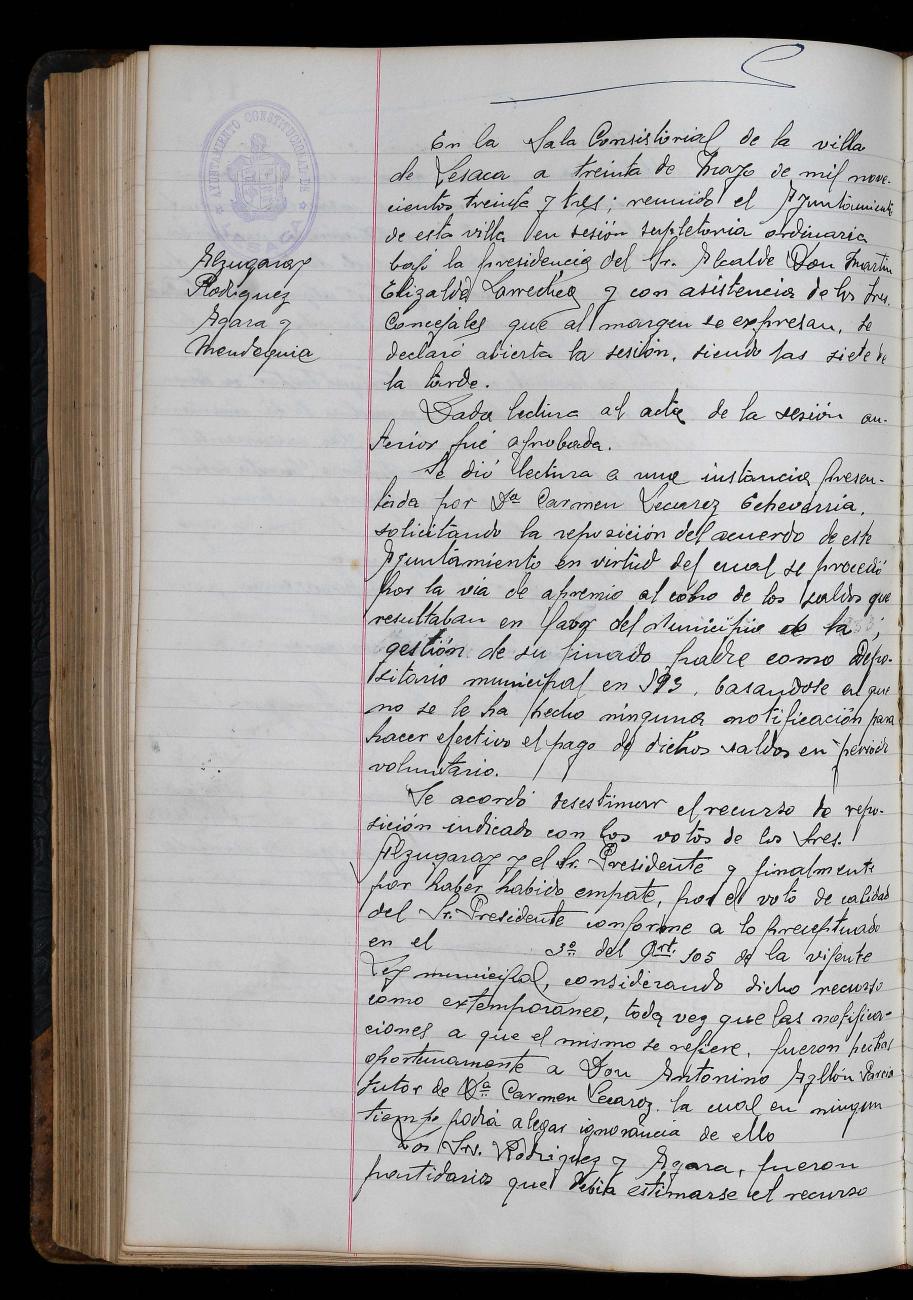 AYUNTAMIENTO CONSTITUCIONAL DE
LESACA
Alzugaray
Rodriguez
Agara y
Mendeguia
En la Sala Consistorial de la villa
de Lesaca a treinta de Mayo de mil nove-
cientos treinta y tres; reunido el Ayuntamiento
de esta villa en sesión supletoria ordinaria
bajo la presidencia del Sr. Alcalde Don Martin
Elizalde Larrechea y con asistencia de los Sres.
Concejales que al margen se expresan, se
declaró abierta la sesión, siendo las siete de
la tarde.
Dada lectura al acta de la sesión an-
terior fué aprobada.
Se dió lectura a una instancia presen-
tada por Dª Carmen Lecaroz Echeverria,
solicitando la reposición del acuerdo de este
Ayuntamiento en virtud del cual se procedió
por la via de apremio al cobro de los saldos que
resultaban en favor del Municipio de la
gestión de su finado padre como Depo-
sitario municipal en 193 , basandose en que
no se le ha hecho ninguna notificación para
hacer efectivo el pago de dichos saldos en periodo
voluntario.
Se acordó desestimar el recurso de repo-
sición indicado con los votos de los Sres.
Alzugaray y el Sr. Presidente y finalmente
por haber habido empate, por el voto de calidad
del Sr. Presidente conforme a lo preceptuado
en el 3º del Art. 105 de la vigente
Ley municipal, considerando dicho recurso
como extemporaneo, toda vez que las notifica-
ciones a que el mismo se refiere, fueron hechas
oportunamente a Don Antonino Agllón
tutor de Dª Carmen Lecaroz, la cual en ningun
tiempo podrá alegar ignorancia de ello
Los Srs. Rodriguez y Agara, fueron
partidarios que debia estimarse el recurso